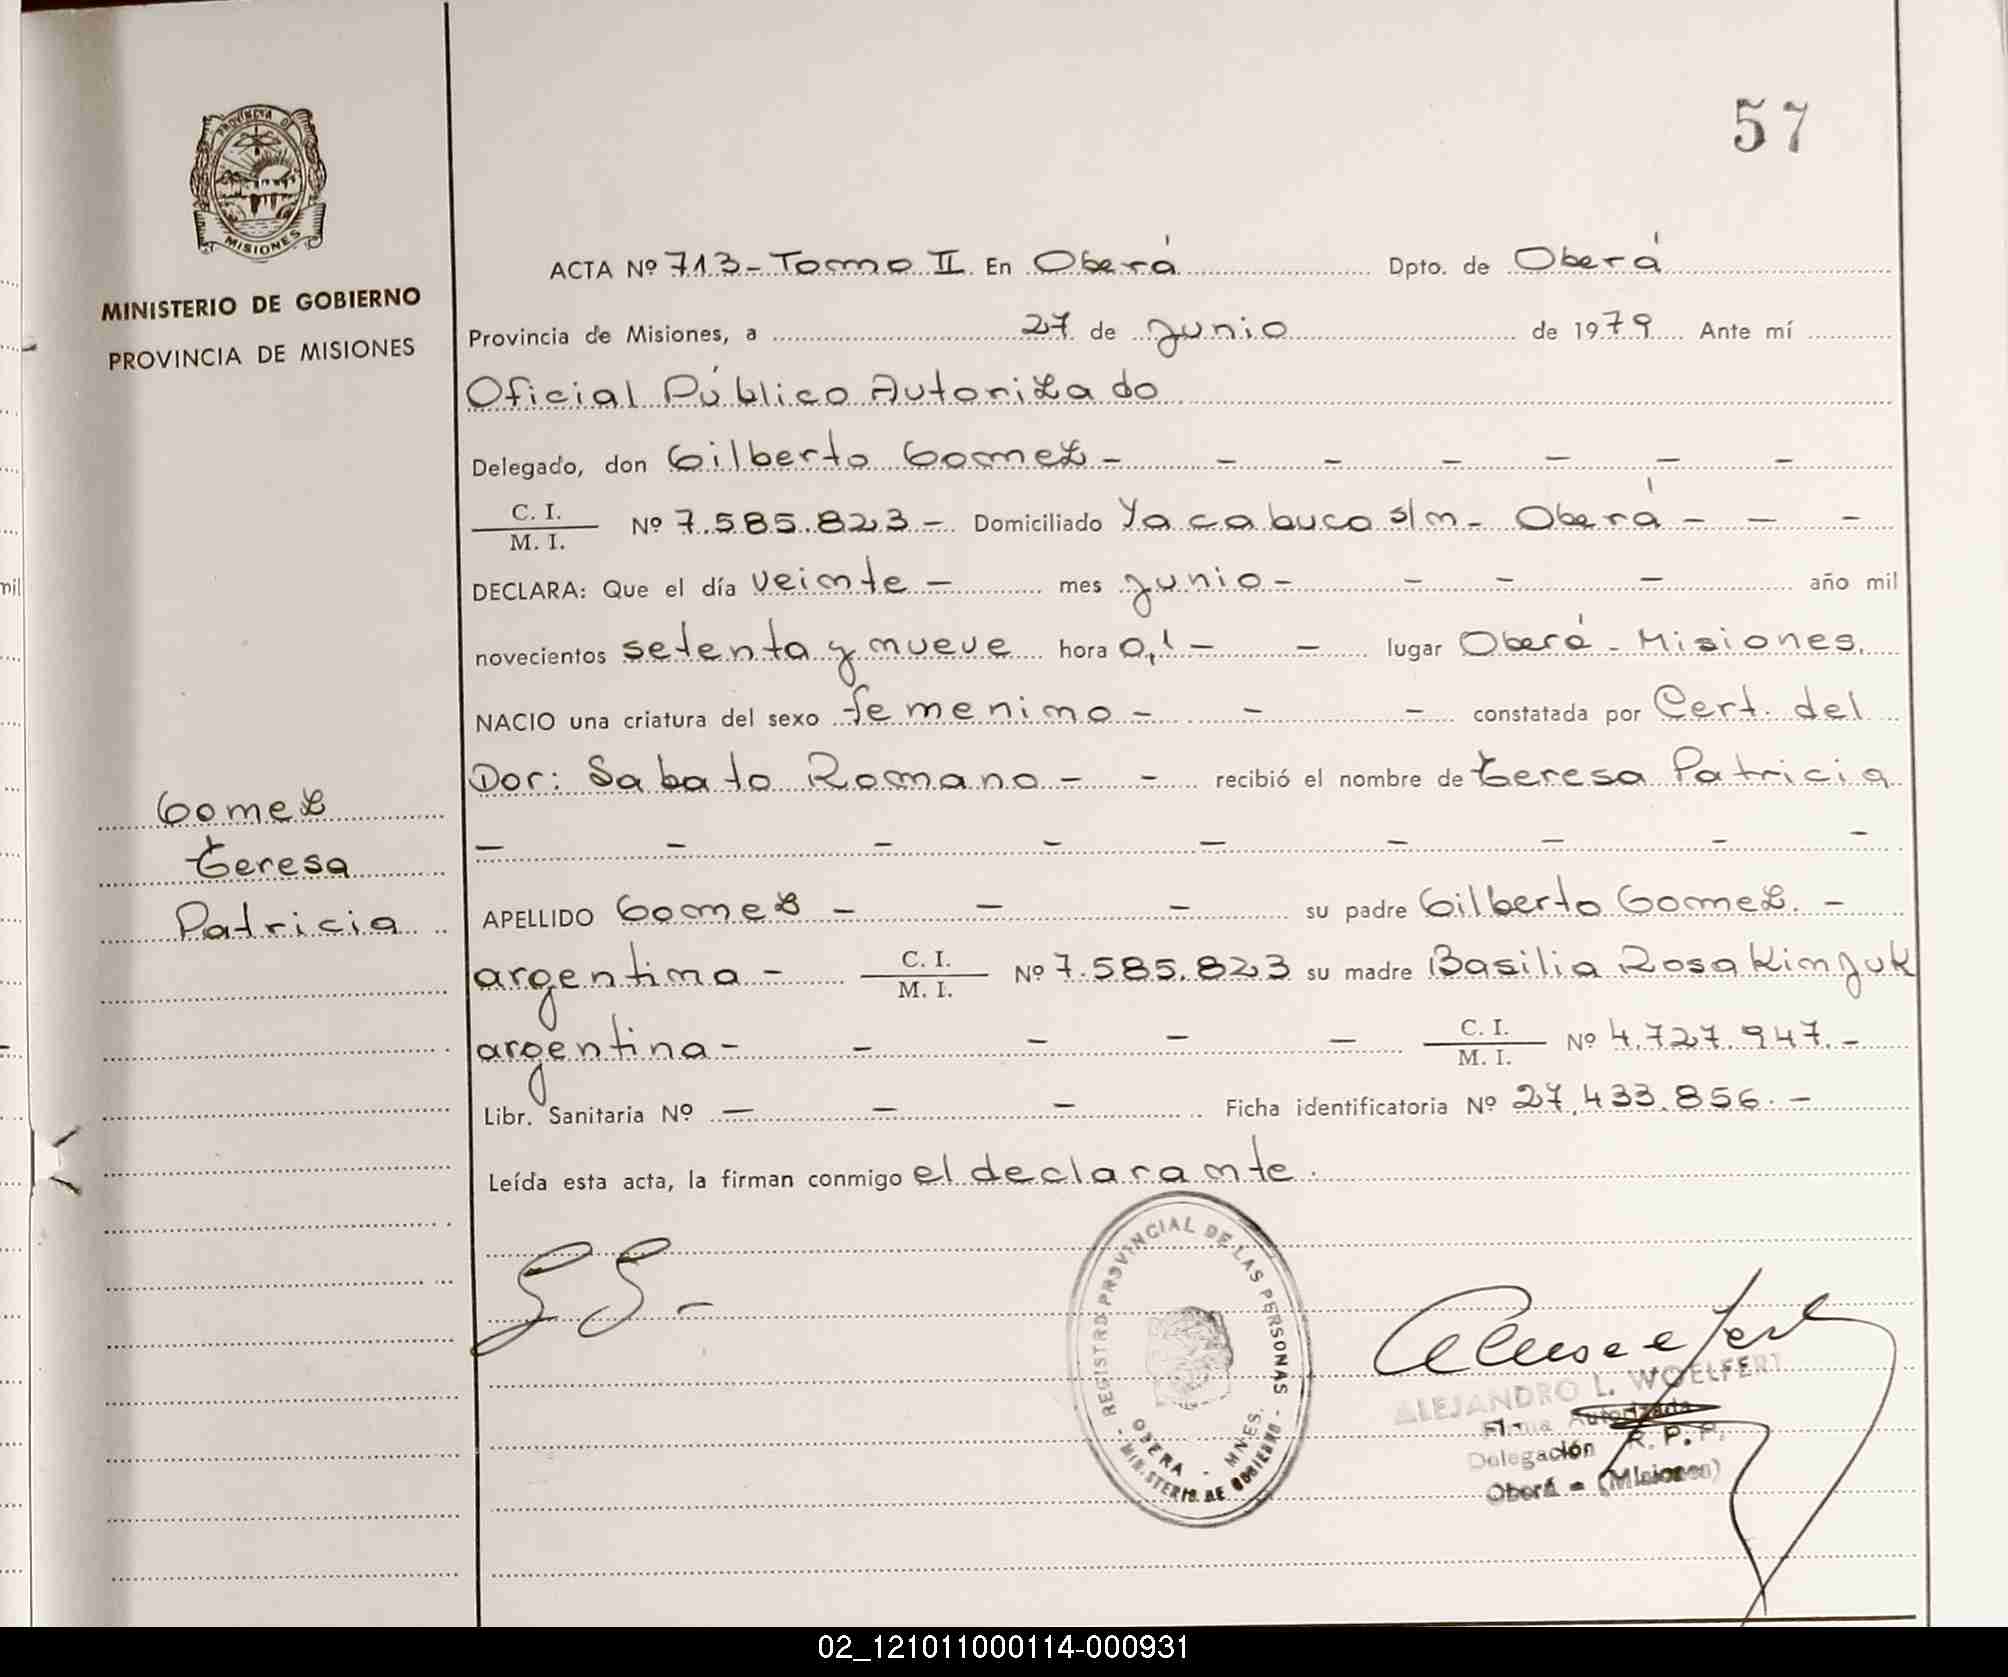 57
PROVINCIA DE
MISIONES
MINISTERIO DE GOBIERNO
PROVINCIA DE MISIONES
ACTA Nº 713 - Tomo II En Oberá Dpto. de Oberá
Provincia de Misiones, a 27 de Junio de 1979 Ante mí
Oficial Público Autorizado
Delegado, don Gilberto Gomez - - - - - - -
C. I. / M. I. Nº 7.585.823 - Domiciliado Yacabuco s/n - Oberá - - -
DECLARA: Que el día veinte - mes Junio - - - - año mil
novecientos setenta y nueve hora 0,1 - - lugar Oberá - Misiones.
NACIO una criatura del sexo femenino - - - constatada por Cert. del
Dor: Sabato Romano - - recibió el nombre de Teresa Patricia
- - - - - - - - -
APELLIDO Gomez - - - su padre Gilberto Gomez. -
argentina - C. I. / M. I. Nº 7.585.823 su madre Basilia Rosa Kinjuk
argentina - - - - - C. I. / M. I. Nº 4.727.947. -
Libr. Sanitaria Nº - - - Ficha identificatoria Nº 27.433.856. -
Leída esta acta, la firman conmigo el declarante.
Gomez
Teresa
Patricia
mil
REGISTRO PROVINCIAL DE LAS PERSONAS
OBERA - MNES.
- MINISTERIO DE GOBIERNO -
ALEJANDRO L. WOELFERT
Firma Autorizada
Delegación R. P. P.
Oberá - (Misiones)
02_121011000114-000931